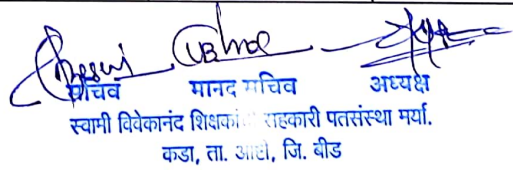 सचिव मानद सचिव अध्यक्ष
स्वामी विवेकानंद शिक्षकांची सहकारी पतसंस्था मर्या.
कडा, ता. आष्टी, जि. बीड